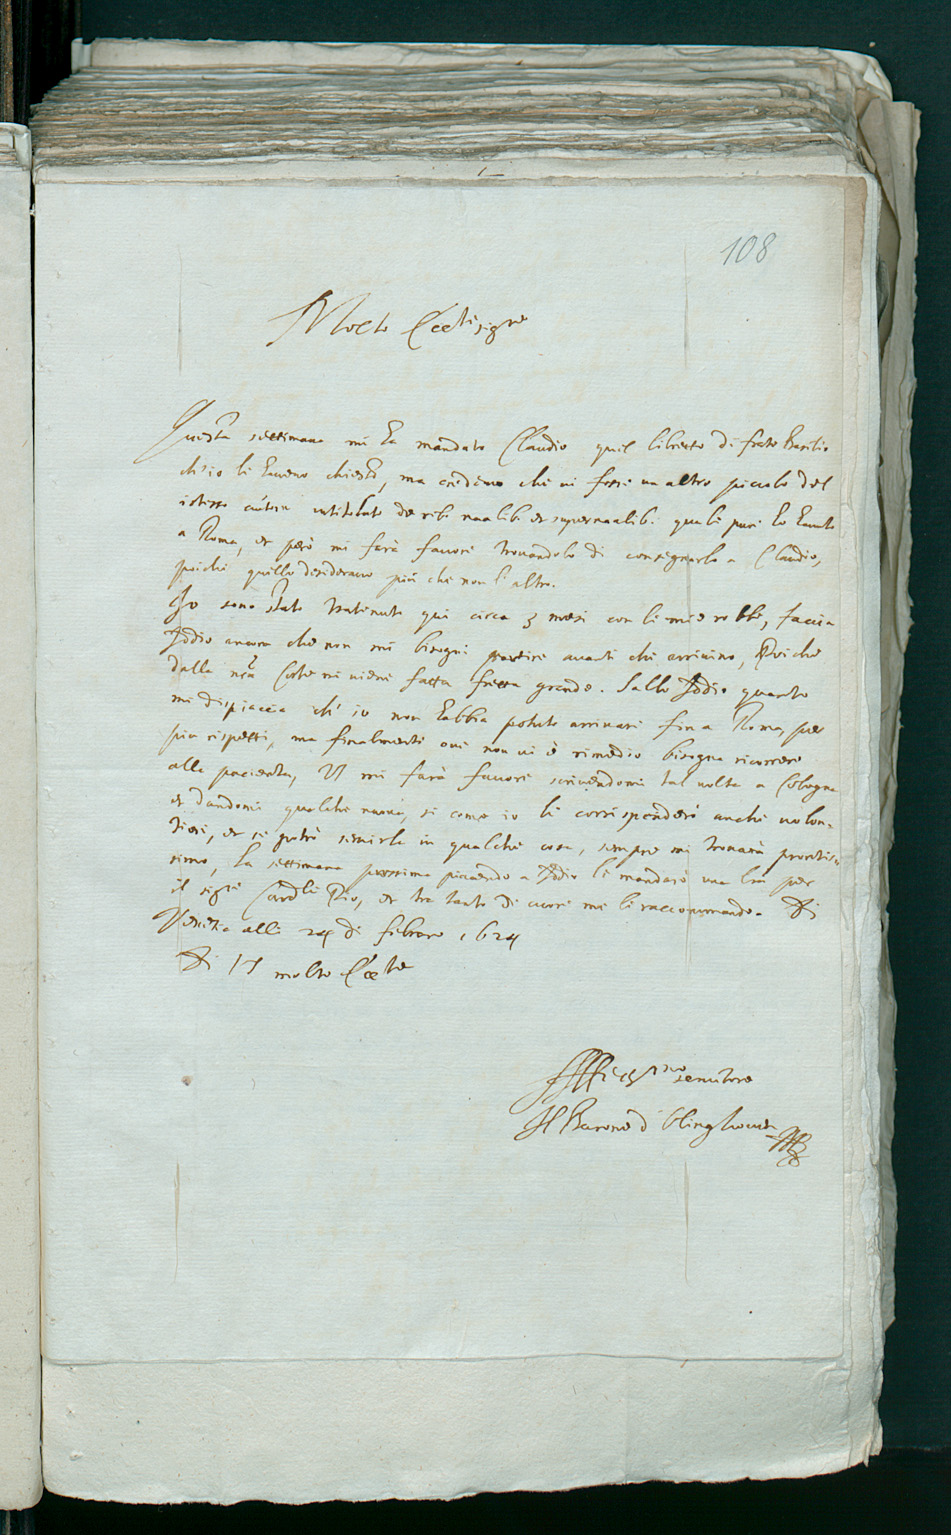 108
Molto Ecc.te sig.re
Questa settimana mi ha mandato Claudio quel libretto di frate Basilio
ch'io li haveva chiesto, ma credevo che vi fosse un altro piccolo del
istesso autore intitolato de reb: nãalib: et supernãalib: quale pure ho havuto
a Roma, et però mi farà favore trovandolo di consignarlo a Claudio,
poiche quello desideravo più che non l'altro.
Io sono stato tratenuto qui circa 3 mesi con le mie robbe, faccia
Iddio ancora che non mi bisogni partire avanti che arrivino, Poiche
dalla nr̃a Corte mi viene fatta fretta grande. Sallo Iddio quanto
mi dispiaccia ch'io non habbia potuto arrivare fin a Roma, per
piu rispetti, ma finalmente ove non vi è rimedio bisogna ricorrere
alla pacienza, VS mi farà favore scrivendomi tal volta a Cologna
et dandomi qualche nuova, si come io li corrisponderò anche volon-
tieri, et se potrò servirla in qualche cosa, sempre mi trovarà prontis-
simo, la settimana prossima piacendo a Iddio li mandarò una lrã per
il sig.re Card.le Pio, et tra tanto di cuore mi li raccommando. Di
Venetia alli 24 di febraro 1624
Di VS molto Ecc.te
Aff.mo servitore
Il Barone d'